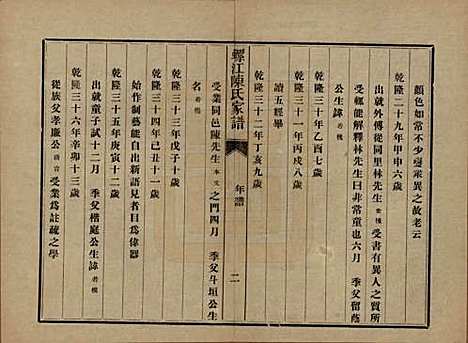 顏色如常不少變衆異之故老云
乾隆二十九年甲申六歲
出就外傅從同里林先生 受書有異人之質所
受輒能解釋林先生曰非常童也六月 季父留蔭
公生諱
乾隆三十年乙酉七歲
乾隆三十一年丙戌八歲
讀五經畢
乾隆三十二年丁亥九歲
螺江陳氏家譜
年譜
二
受業同邑陳先生 之門四月 季父斗垣公生
名
乾隆三十三年戊子十歲
乾隆三十四年己丑十一歲
始作制藝能自出新語見者目爲偉器
乾隆三十五年庚寅十二歲
出就童子試十二月 季父楷庭公生諱若
乾隆三十六年辛卯十三歲
從族父孝廉公 受業爲註疏之學